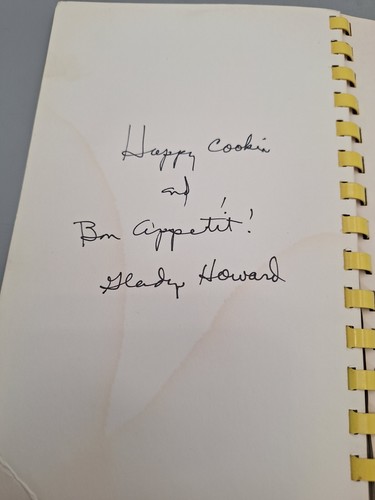 Happy Cookin
and
Bon Appetit!!
Gladys Howard